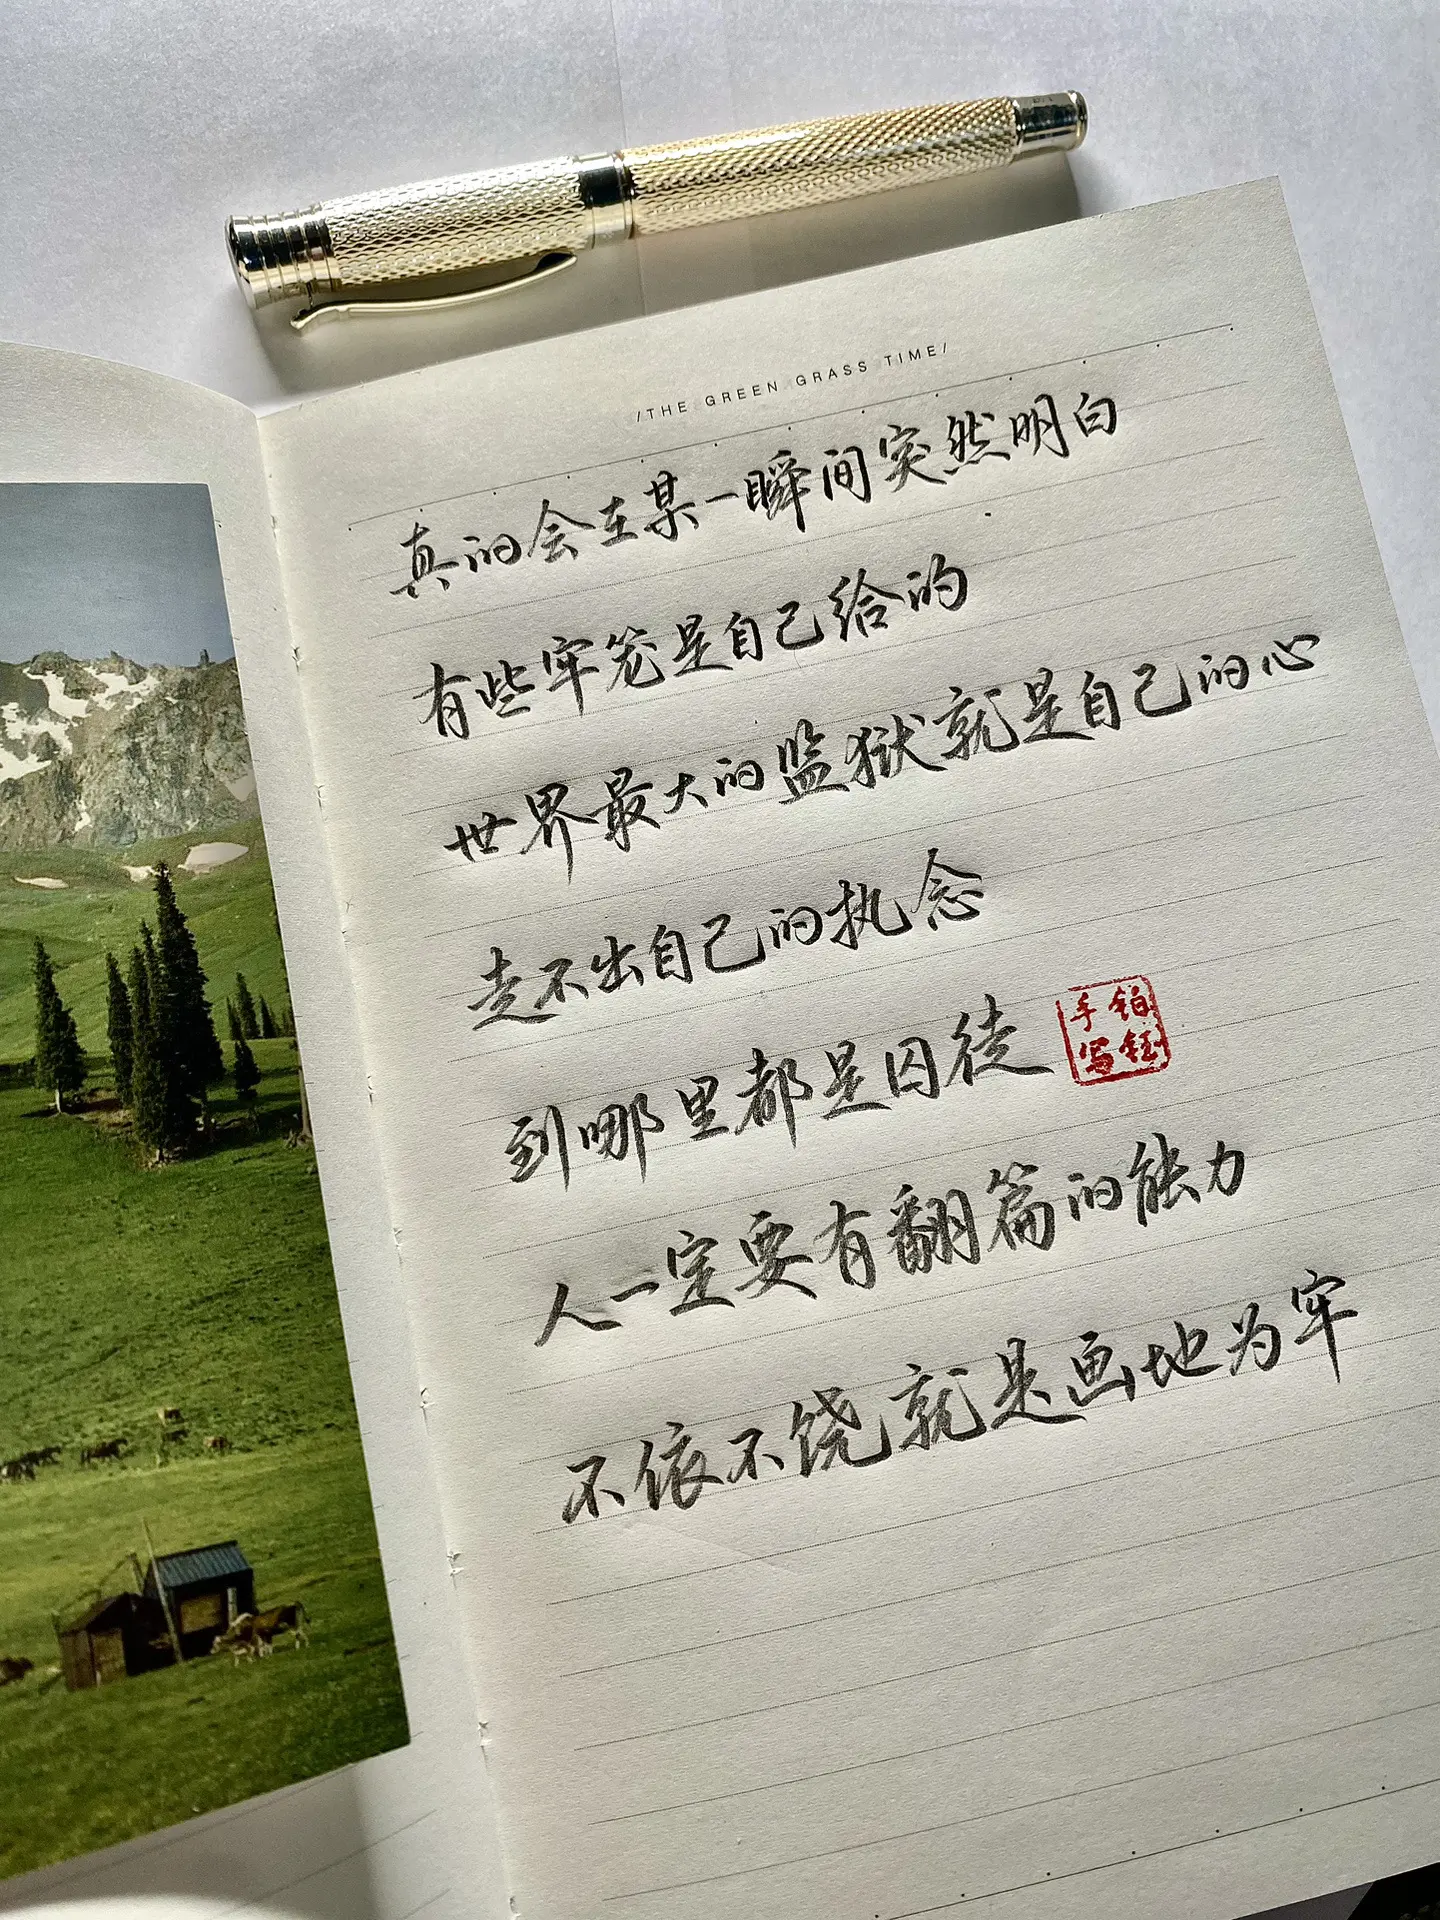 /THE GREEN GRASS TIME/
真的会在某一瞬间突然明白
有些牢笼是自己给的
世界最大的监狱就是自己的心
走不出自己的执念
到哪里都是囚徒
铂钰
手写
人一定要有翻篇的能力
不依不饶就是画地为牢